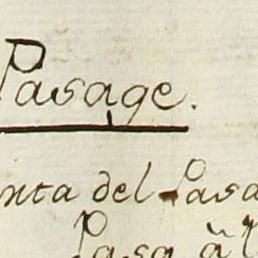 Pasage.
nta del Pasa
Pasa à l